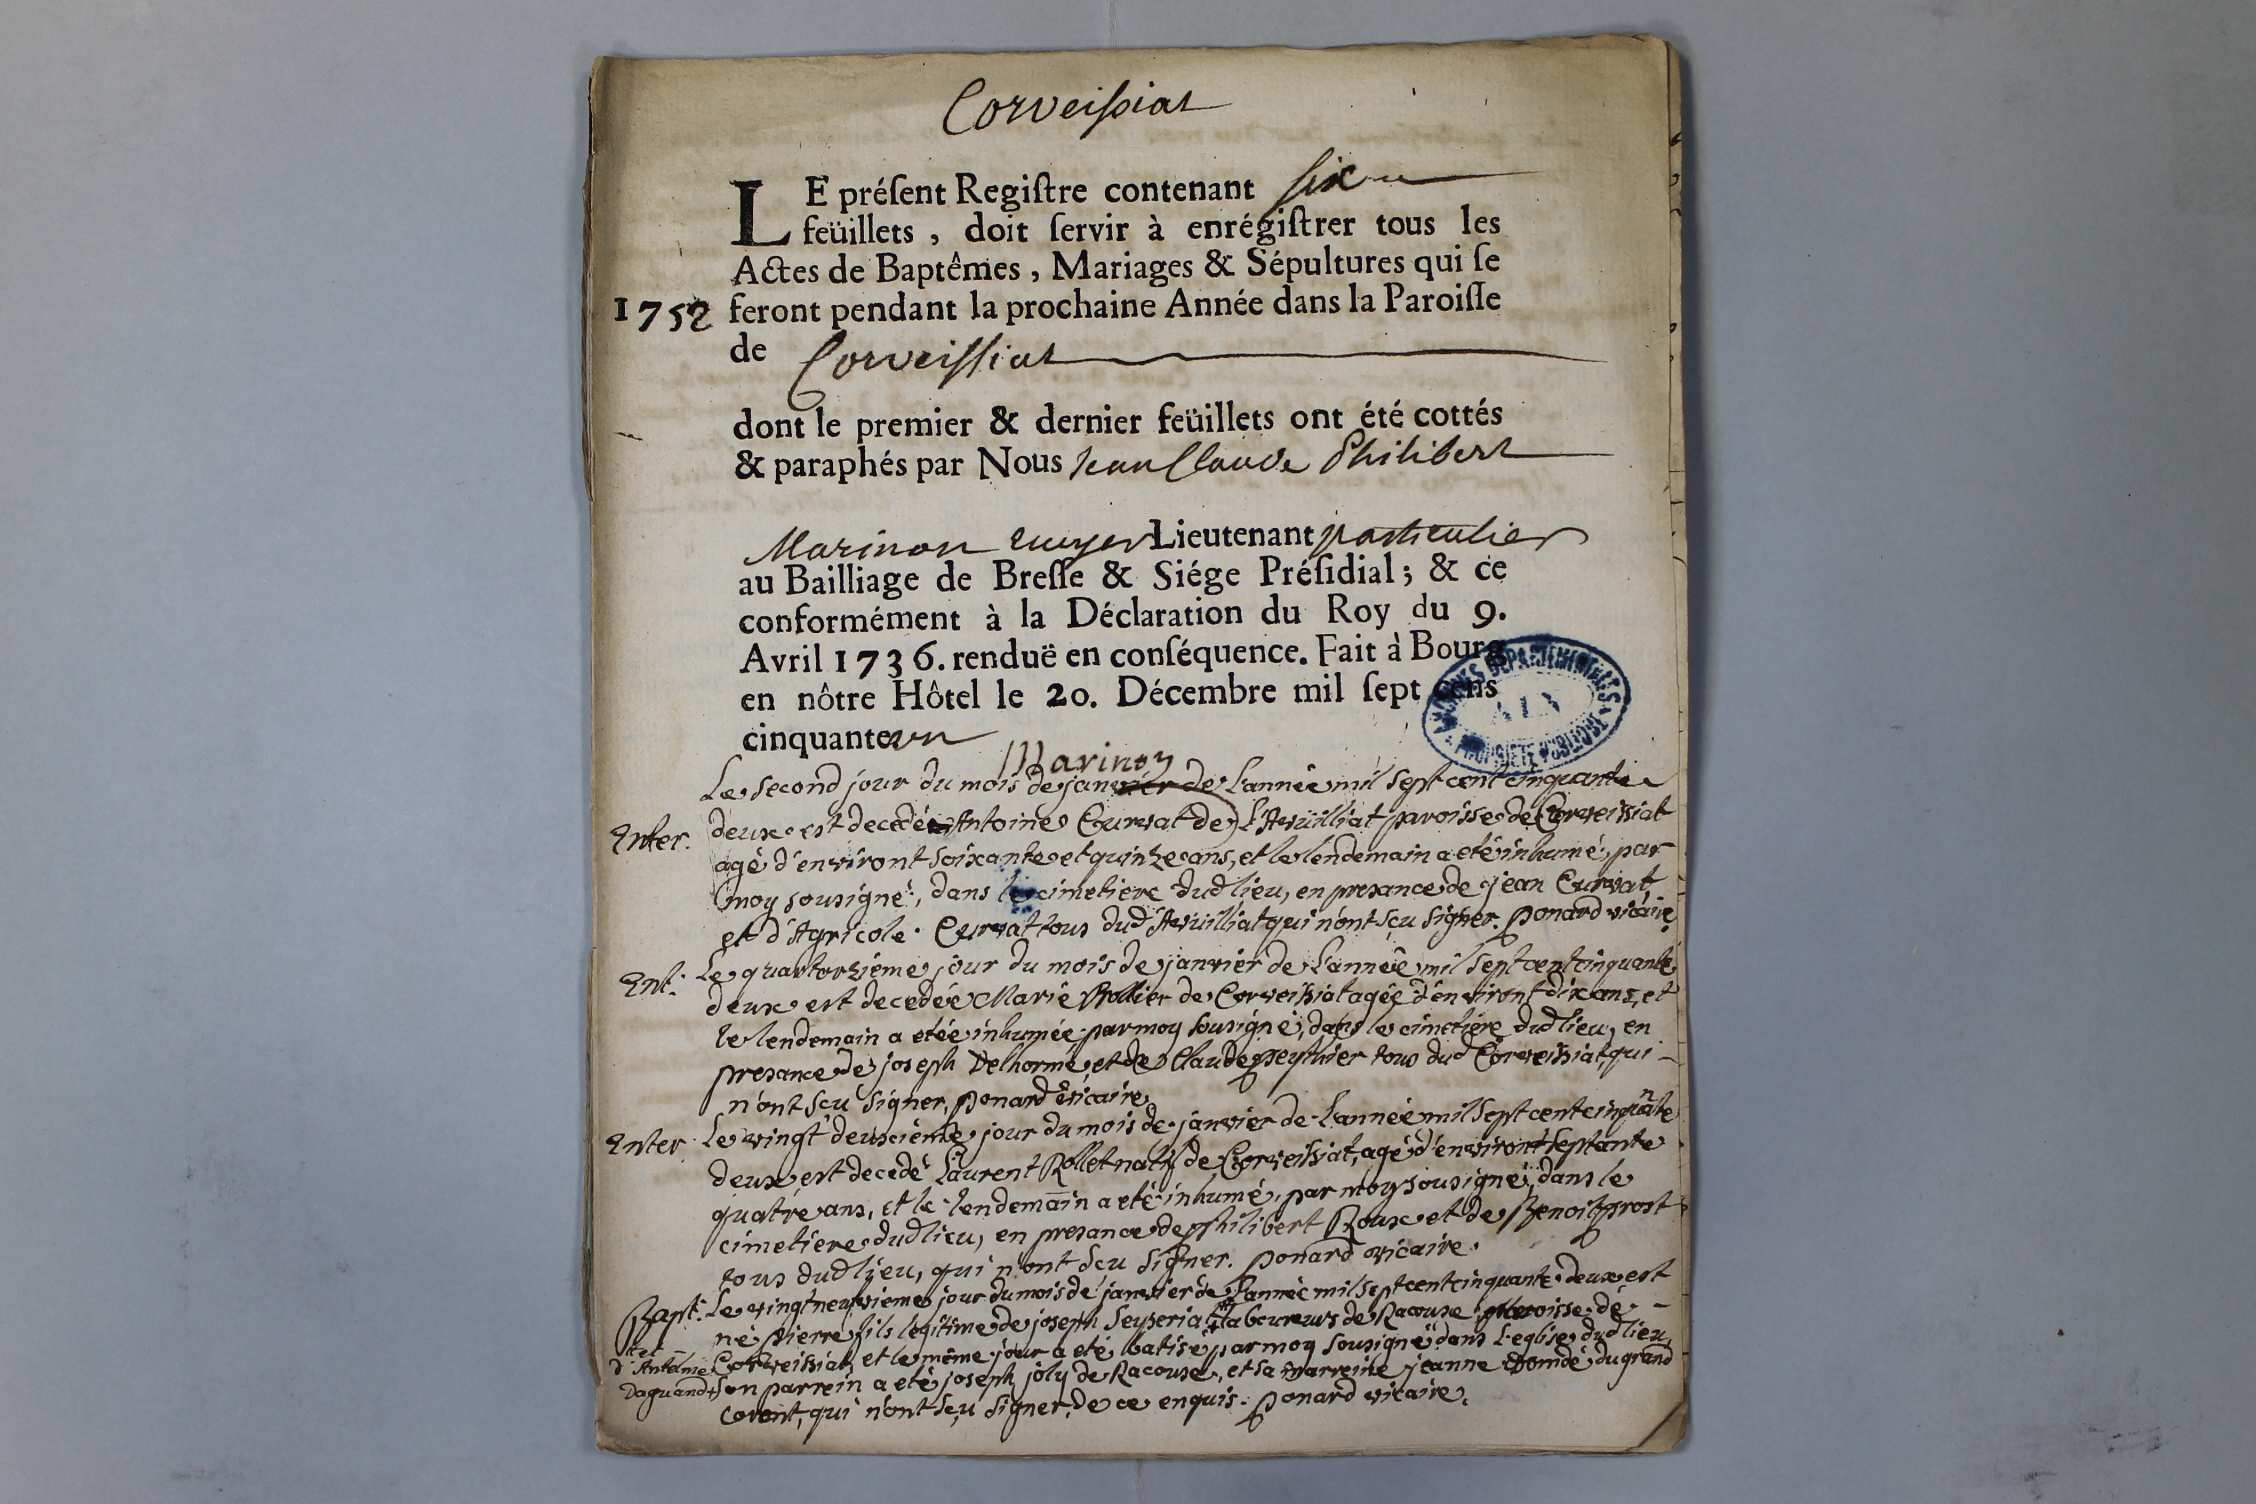 Corveissiat
LE préſent Regiſtre contenant six
feüillets, doit ſervir à enrégiſtrer tous les
Actes de Baptêmes, Mariages & Sépultures qui ſe
1752 feront pendant la prochaine Année dans la Paroiſſe
de Corveissiat
dont le premier & dernier feüillets ont été cottés
& paraphés par Nous Jean Claude Philibert
Marinon Lieutenant particulier
au Bailliage de Breſſe & Siége Préſidial; & ce
conformément à la Déclaration du Roy du 9.
Avril 1736. renduë en conſéquence. Fait à Bourg
en nôtre Hôtel le 20. Décembre mil ſept cens
cinquante un
Marinon
ARCHIVES DEPARTEMENTALES AIN PROPRIETE PUBLIQUE
Le second jour du mois de janvier de l'année mil sept cent cinquante
Enter. deux est decedé Antoine Curvat de L'Avuilliat paroisse de Corveissiat
agé d'environt soixante et quinze ans, et le lendemain a eté inhumé, par
moy sousigné, dans le cimetiere dud lieu, en presance de jean Curvat,
et d'Agricole Curvat tous dud Avuilliat qui n'ont sçu signer. Ponard vicaire.
Ent. Le quartorzieme jour du mois de janvier de l'année mil sept cent cinquante
deux est decedée Marie Rollier de Corveissiat agée d'environt dix ans, et
le lendemain a etée inhumée par moy sousigné, dans le cimetiere dud lieu, en
presance de joseph Delhorme, et de Claude peythier tous dud Corveissiat, qui
n'ont sçu signer, Ponard vicaire.
Enter Le vingt deuxieme jour du mois de janvier de l'année mil sept cent cinquãte
deux est decedé Laurent Rollet natif de Corveissiat, agé d'environt septante
quatre ans, et le lendemain a eté inhumé, par moy sousigné, dans le
cimetiere dud lieu, en presance de philibert Roux et de Benoit prost
tous dud lieu, qui n'ont sçu signer. Ponard vicaire.
Bapt. Le vingt neuvieme jour du mois de janvier de l'année mil sept cent cinquante deux est
né pierre fils legitime de joseph Seyzeriat laboureurs de Racouse paroisse de
et d'Antelme Daguand Corveissiat, et le même jour a eté batisé par moy sousigné dans l'eglise dud lieu,
son parrein a eté joseph joly de Racouse, et sa marreine jeanne du grand
corent, qui n'ont sçu signer, de ce enquis. Ponard vicaire.